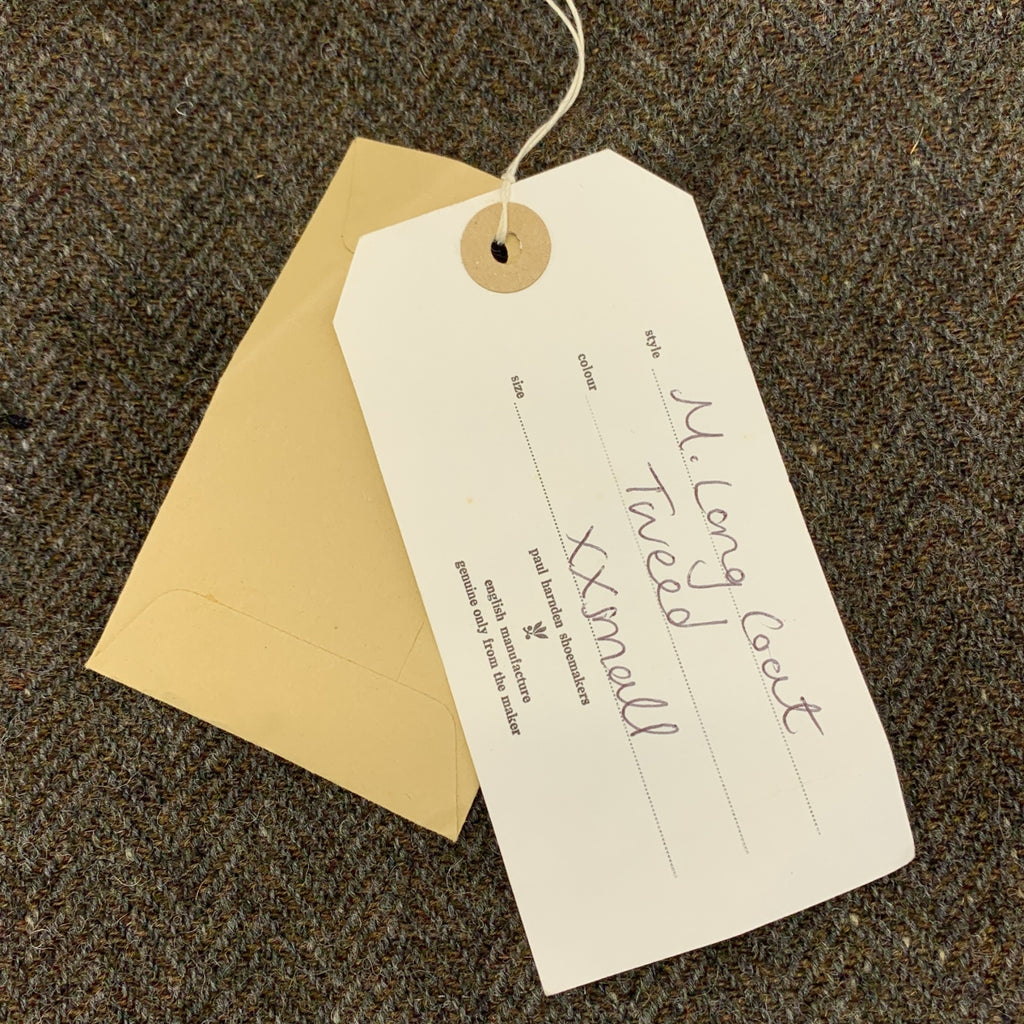 style M. Long Coat
colour Tweed
size XXSmall
paul harnden shoemakers
english manufacture
genuine only from the maker